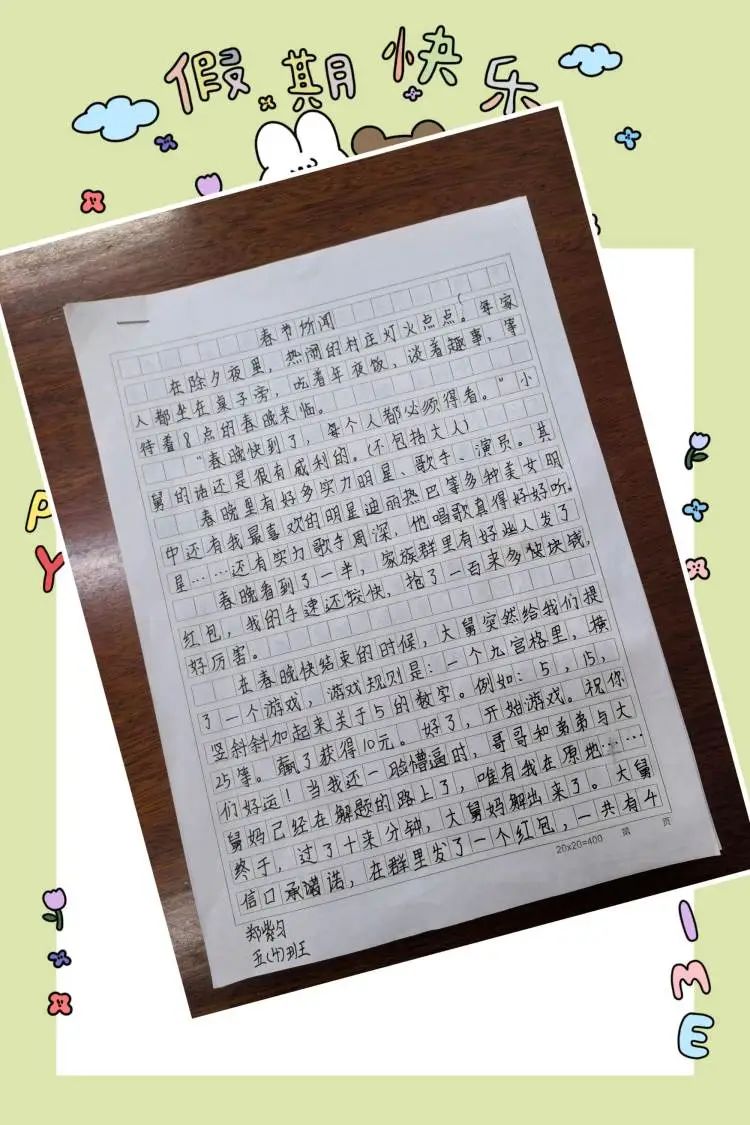 假期快乐
春节伤闻
在除夕夜里，热闹的村庄灯火点点。每家
人都坐在桌子旁，吃着年夜饭，谈着趣事，等
待着8点的春晚来临。
“春晚快到了，每个人都必须得看。”小
舅的话还是很有威利的。(不包括大人)
春晚里有好多实力明星、歌手、演员。其
中还有我最喜欢的明星迪丽热巴等多种美女明
星……还有实力歌手周深，他唱歌真得好好听。
春晚看到了一半，家族群里有好些人发了
红包，我的手速还较快，抢了一百来多块块钱，
好厉害。
在春晚快结束的时候，大舅突然给我们提
了一个游戏，游戏规则是：一个九宫格里，横
竖斜斜加起来关于5的数字。例如：5，15，
25等。赢了获得10元。好了，开始游戏。祝你
们好运！当我还一脸懵逼时，哥哥和弟弟与大
舅妈已经在解题的路上了，唯有我在原地……
终于，过了十来分钟，大舅妈解出来了。大舅
信口承诺诺，在群里发了一个红包，一共有4
20x20=400 第 页
郑紫匀
五(4)班
P
Y
I
M
E